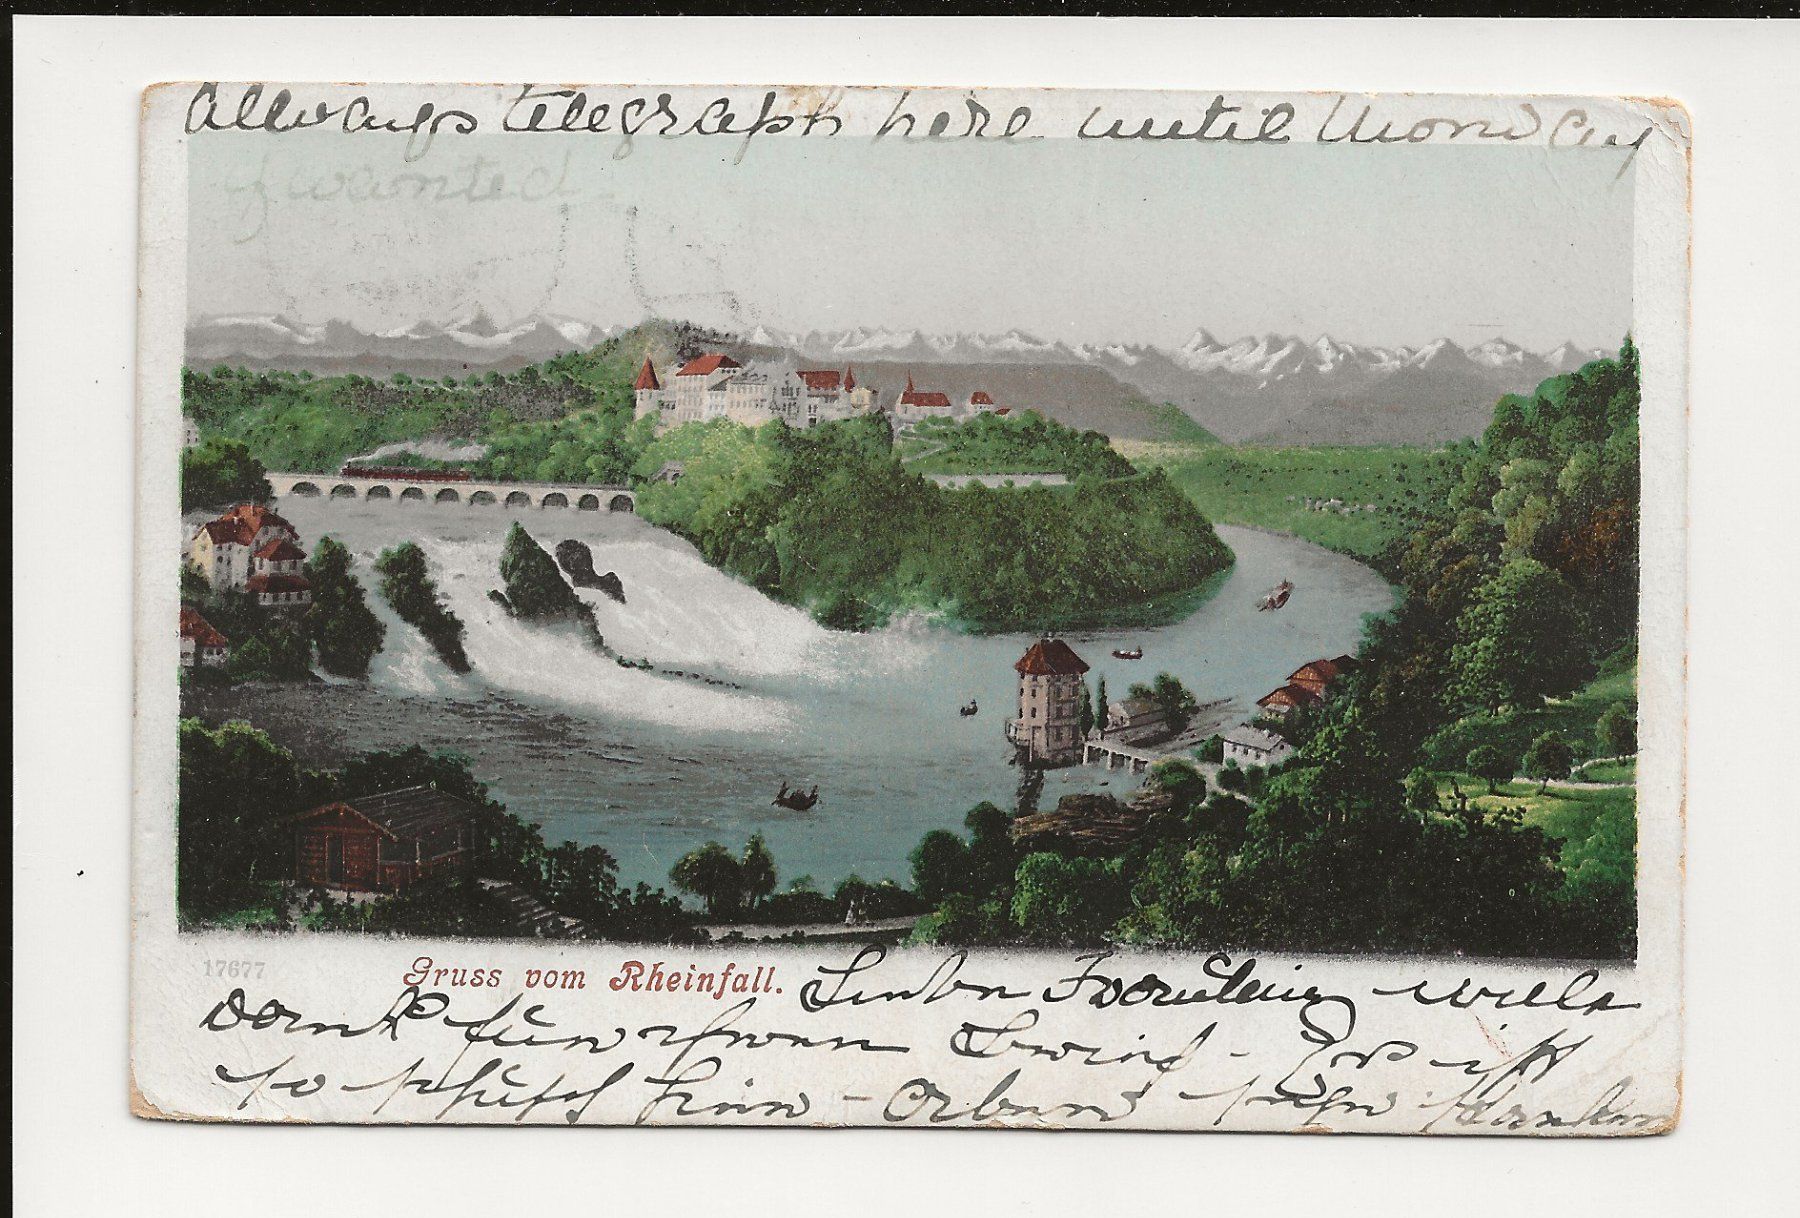 Allways telegraph here until Monday
if wanted
17677
Gruss vom Rheinfall.
Liebes Fraulein viele
dank für ihren Brief - Es ist
so schön hier - aber sehr